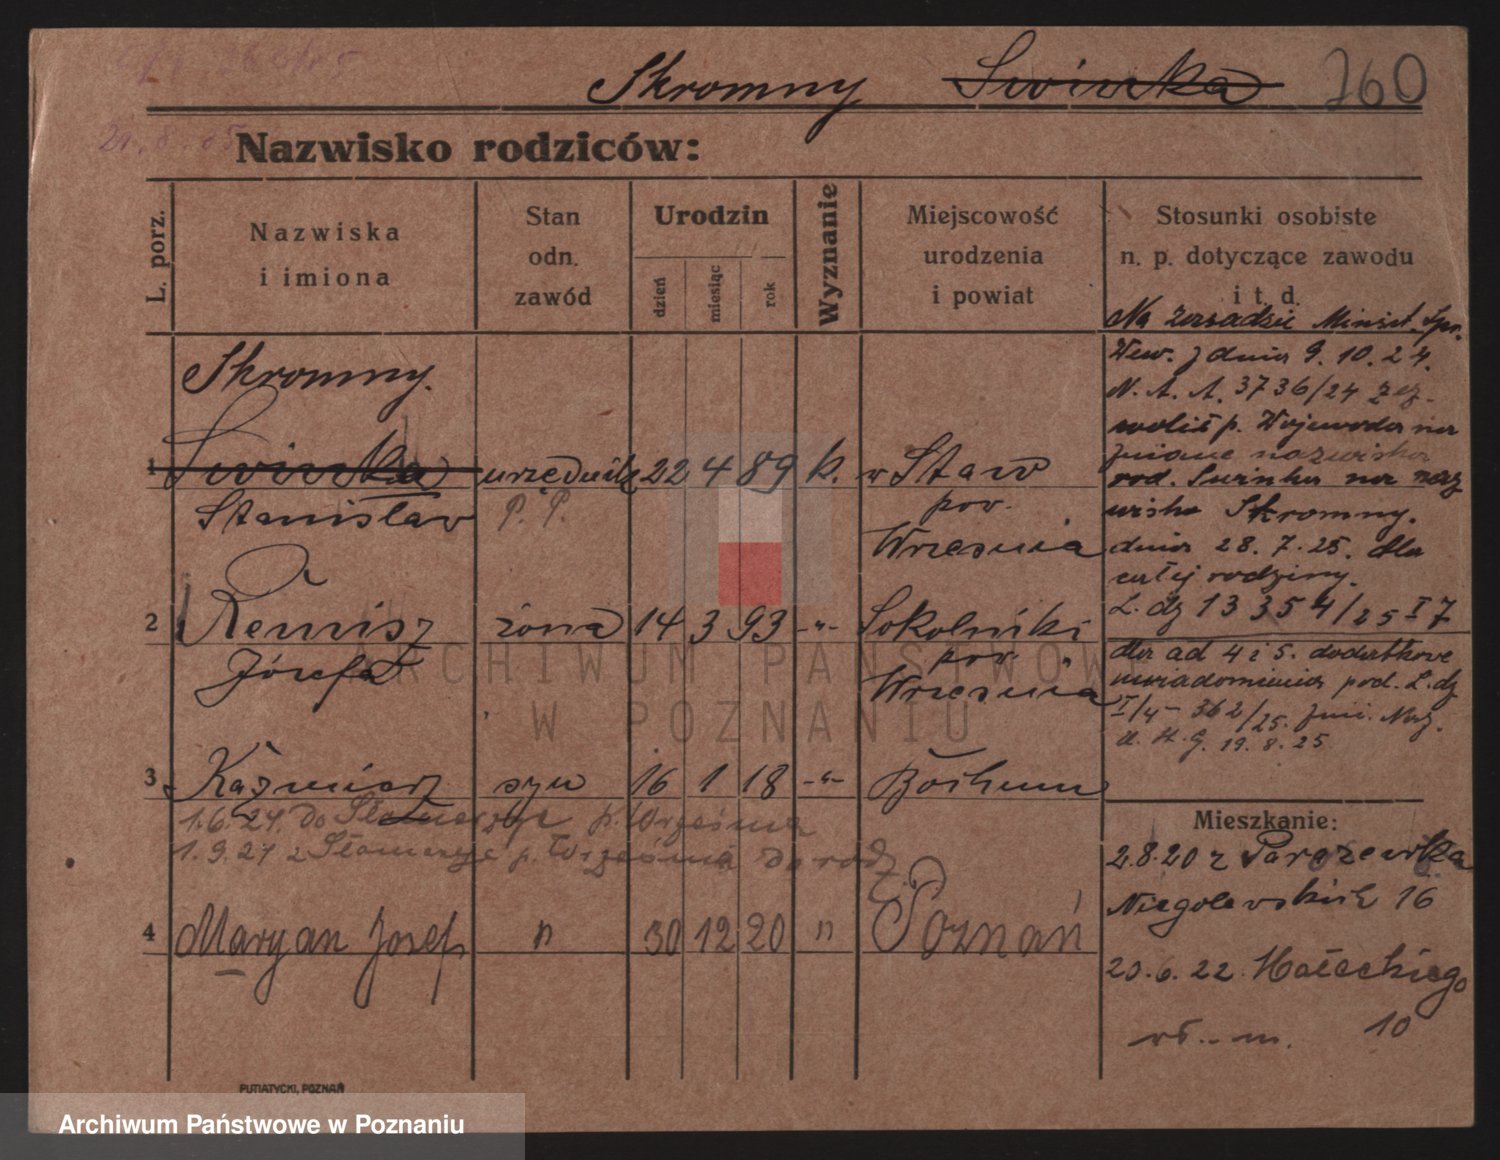 Skromny Swinka 760
Nazwisko rodziców:
L. porz.
Nazwiska
i imiona
Stan
odn.
zawód
Urodzin
dzień
miesiąc
rok
Wyznanie
Miejscowość
urodzenia
i powiat
Stosunki osobiste
n. p. dotyczące zawodu
i t. d.
Na zasadzie Minist. Spr.
Wew. z dnia 9. 10. 24.
N. A. A. 3736/24 zez-
wolił p. Wojewoda na
zmianę nazwiska
rod. Swinka na naz
wisko Skromny.
dnia 28. 7. 25. dla
całej rodziny.
L. dz 13354/25 I 7
dla ad 4 i 5. dodatkowe
pod. L. dz
I/4 - 362/25.
19. 8. 25
Skromny.
1 Swinka urzędnik 22 4 89 k. Staw
Stanisław P. P. pow.
Wrzesnia
2 Remisz żona 14 3 93 -"- Sokolniki
Józefa pow.
Wrzesnia
3 Kaźmierz syn 16 1 18 -"- Bochum
1. 6. 24. do p. Września
1. 9. 24 z p. Września do rodz.
4 Maryan Josef n 30 12 20 n Poznań
Mieszkanie:
2.8.20 z
Niegolewskich 16
20. 6. 22. Małeckiego
10
PUTIATYCKI, POZNAŃ
ARCHIWUM PAŃSTWOWE
W POZNANIU
Archiwum Państwowe w Poznaniu